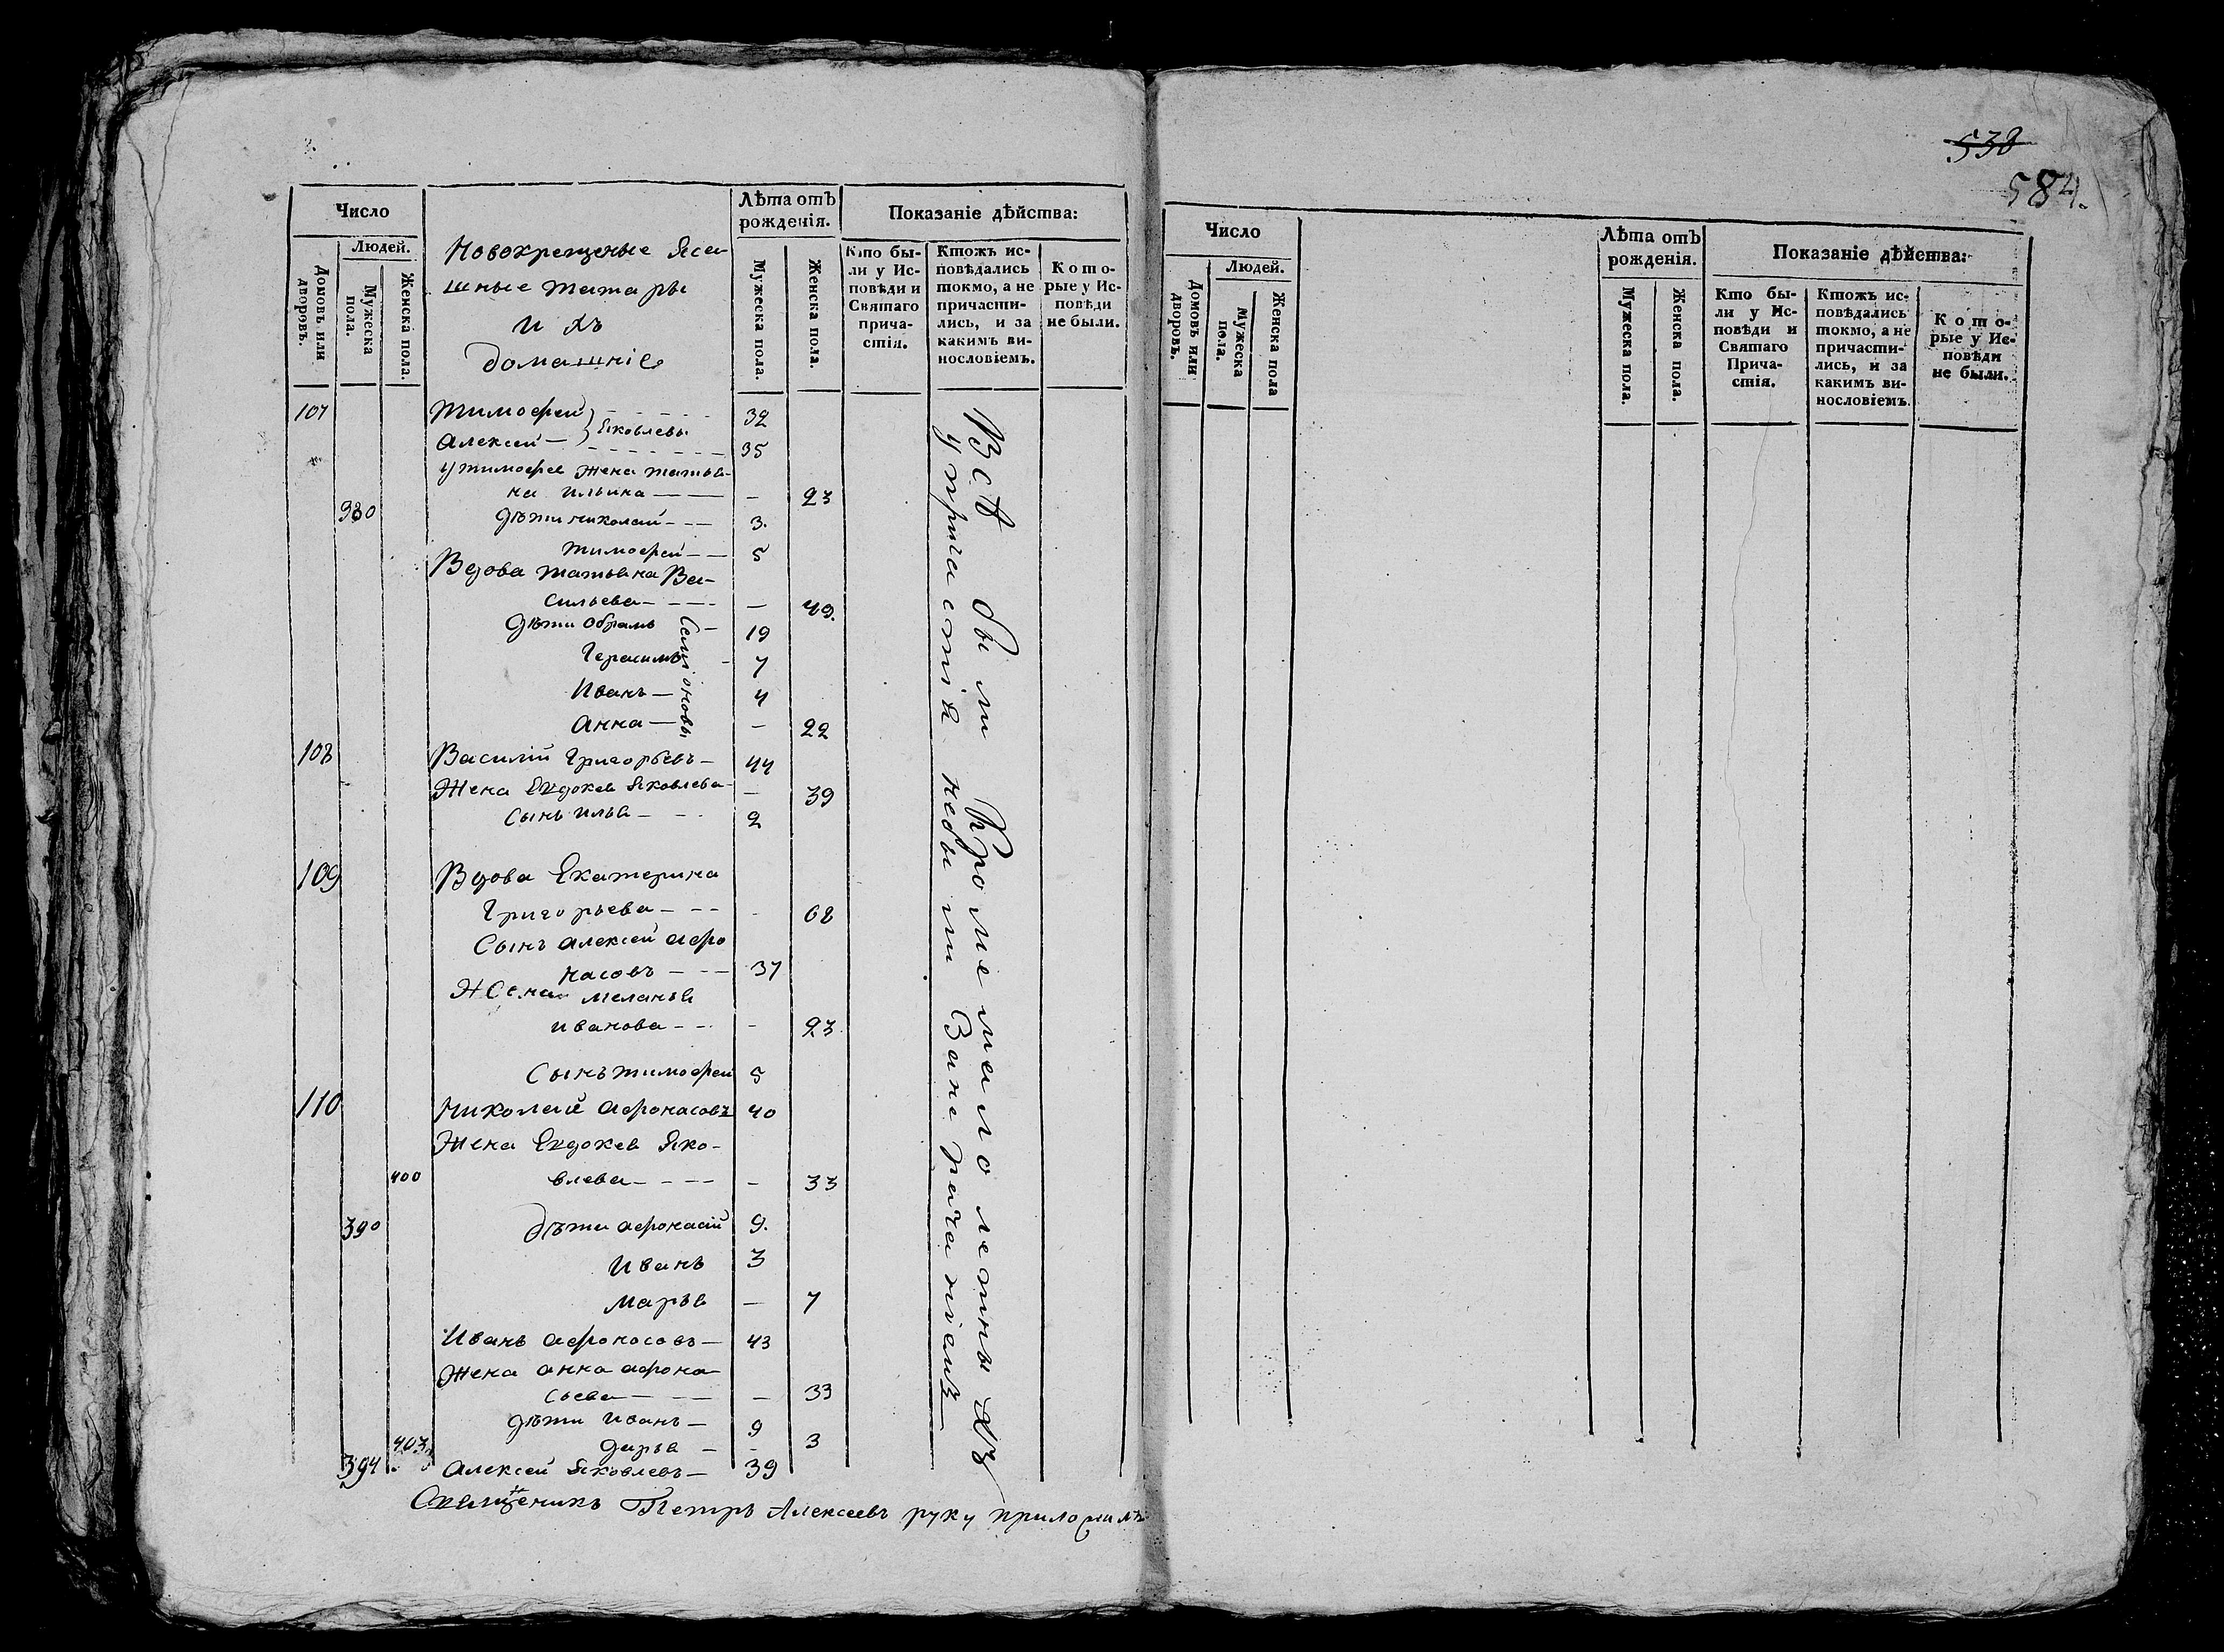 538
584.
Число
Людей.
Домовъ или дворовъ.
Мужеска пола.
Женска пола.
Новокрещеные Яса-
шные татары
и хъ
домашнiе
Лѣта отъ
рожденія.
Мужеска пола.
Женска пола.
Показаніе дѣйства:
Кто бы-
ли у Ис-
повѣди и
Святаго
прича-
стія.
Ктожъ ис-
повѣдались
токмо, а не
причасти-
лись, и за
какимъ ви-
нословіемъ.
Кото-
рые у Ис-
повѣди
не были.
107 Тимофей } Яковлевы 32
Алексей 35
у тимофея жена татья-
на ильина — 23
380 дѣти николай 3.
тимофей 5
Вдова татьяна Ва-
сильева — 49.
дѣти Обрамъ 19
Герасимъ 7
Иванъ 4
анна — 22
Семіоновы
108 Василiй Григорьевъ 44
Жена Евдокея Яковлева — 39
Сынъ илья 2
109 Вдова Екатерина
Григорьева - 68
Сынъ алексей афо
насовъ 37
Жена меланья
иванова - 23
Сынъ тимофей 5
110 николай афонасовъ 40
Жена Евдокея Яко-
400 влева - 33
390 дѣти афонасiй 9.
Иванъ 3
марья — 7
Иванъ афонасовъ 43
Жена анна афона
сьева — 33
дѣти иванъ 9
403 дарья - 3
394 алексей Яковлевъ 39
Всѣ были Кроме малолетныхъ
у причастiя небыли За нерачанiемъ
Священикъ Петръ Алексеевъ руку приложилъ
Число
Людей.
Домовъ или дворовъ.
Мужеска пола.
Женска пола
Лѣта отъ
рожденія.
Мужеска пола.
Женска пола.
Показаніе дѣйства:
Кто бы-
ли у Ис-
повѣди и
Святаго
Прича-
стія.
Ктожъ ис-
повѣдались
токмо, а не
причасти-
лись, и за
какимъ ви-
нословіемъ.
Кото-
рые у Ис-
повѣди
не были.